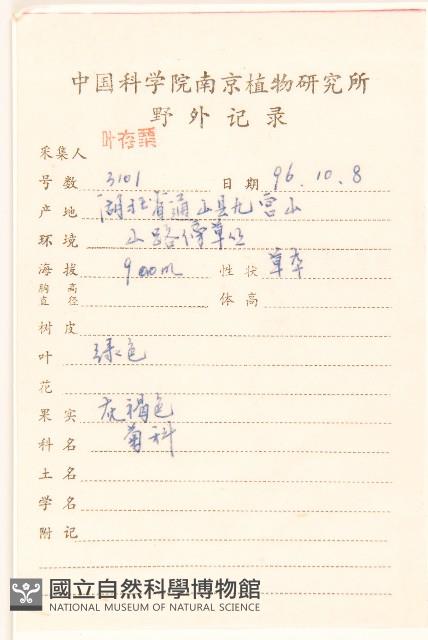 中国科学院南京植物研究所
野外记录
采集人 叶存粟
号数 3101 日期 96.10.8
产地 湖北省通山县九宫山
环境 山路傍草丛
海拔 900m 性状 草本
胸高直径 体高
树皮
叶 绿色
花
果实 灰褐色
科名 菊科
土名
学名
附记
國立自然科學博物館
NATIONAL MUSEUM OF NATURAL SCIENCE